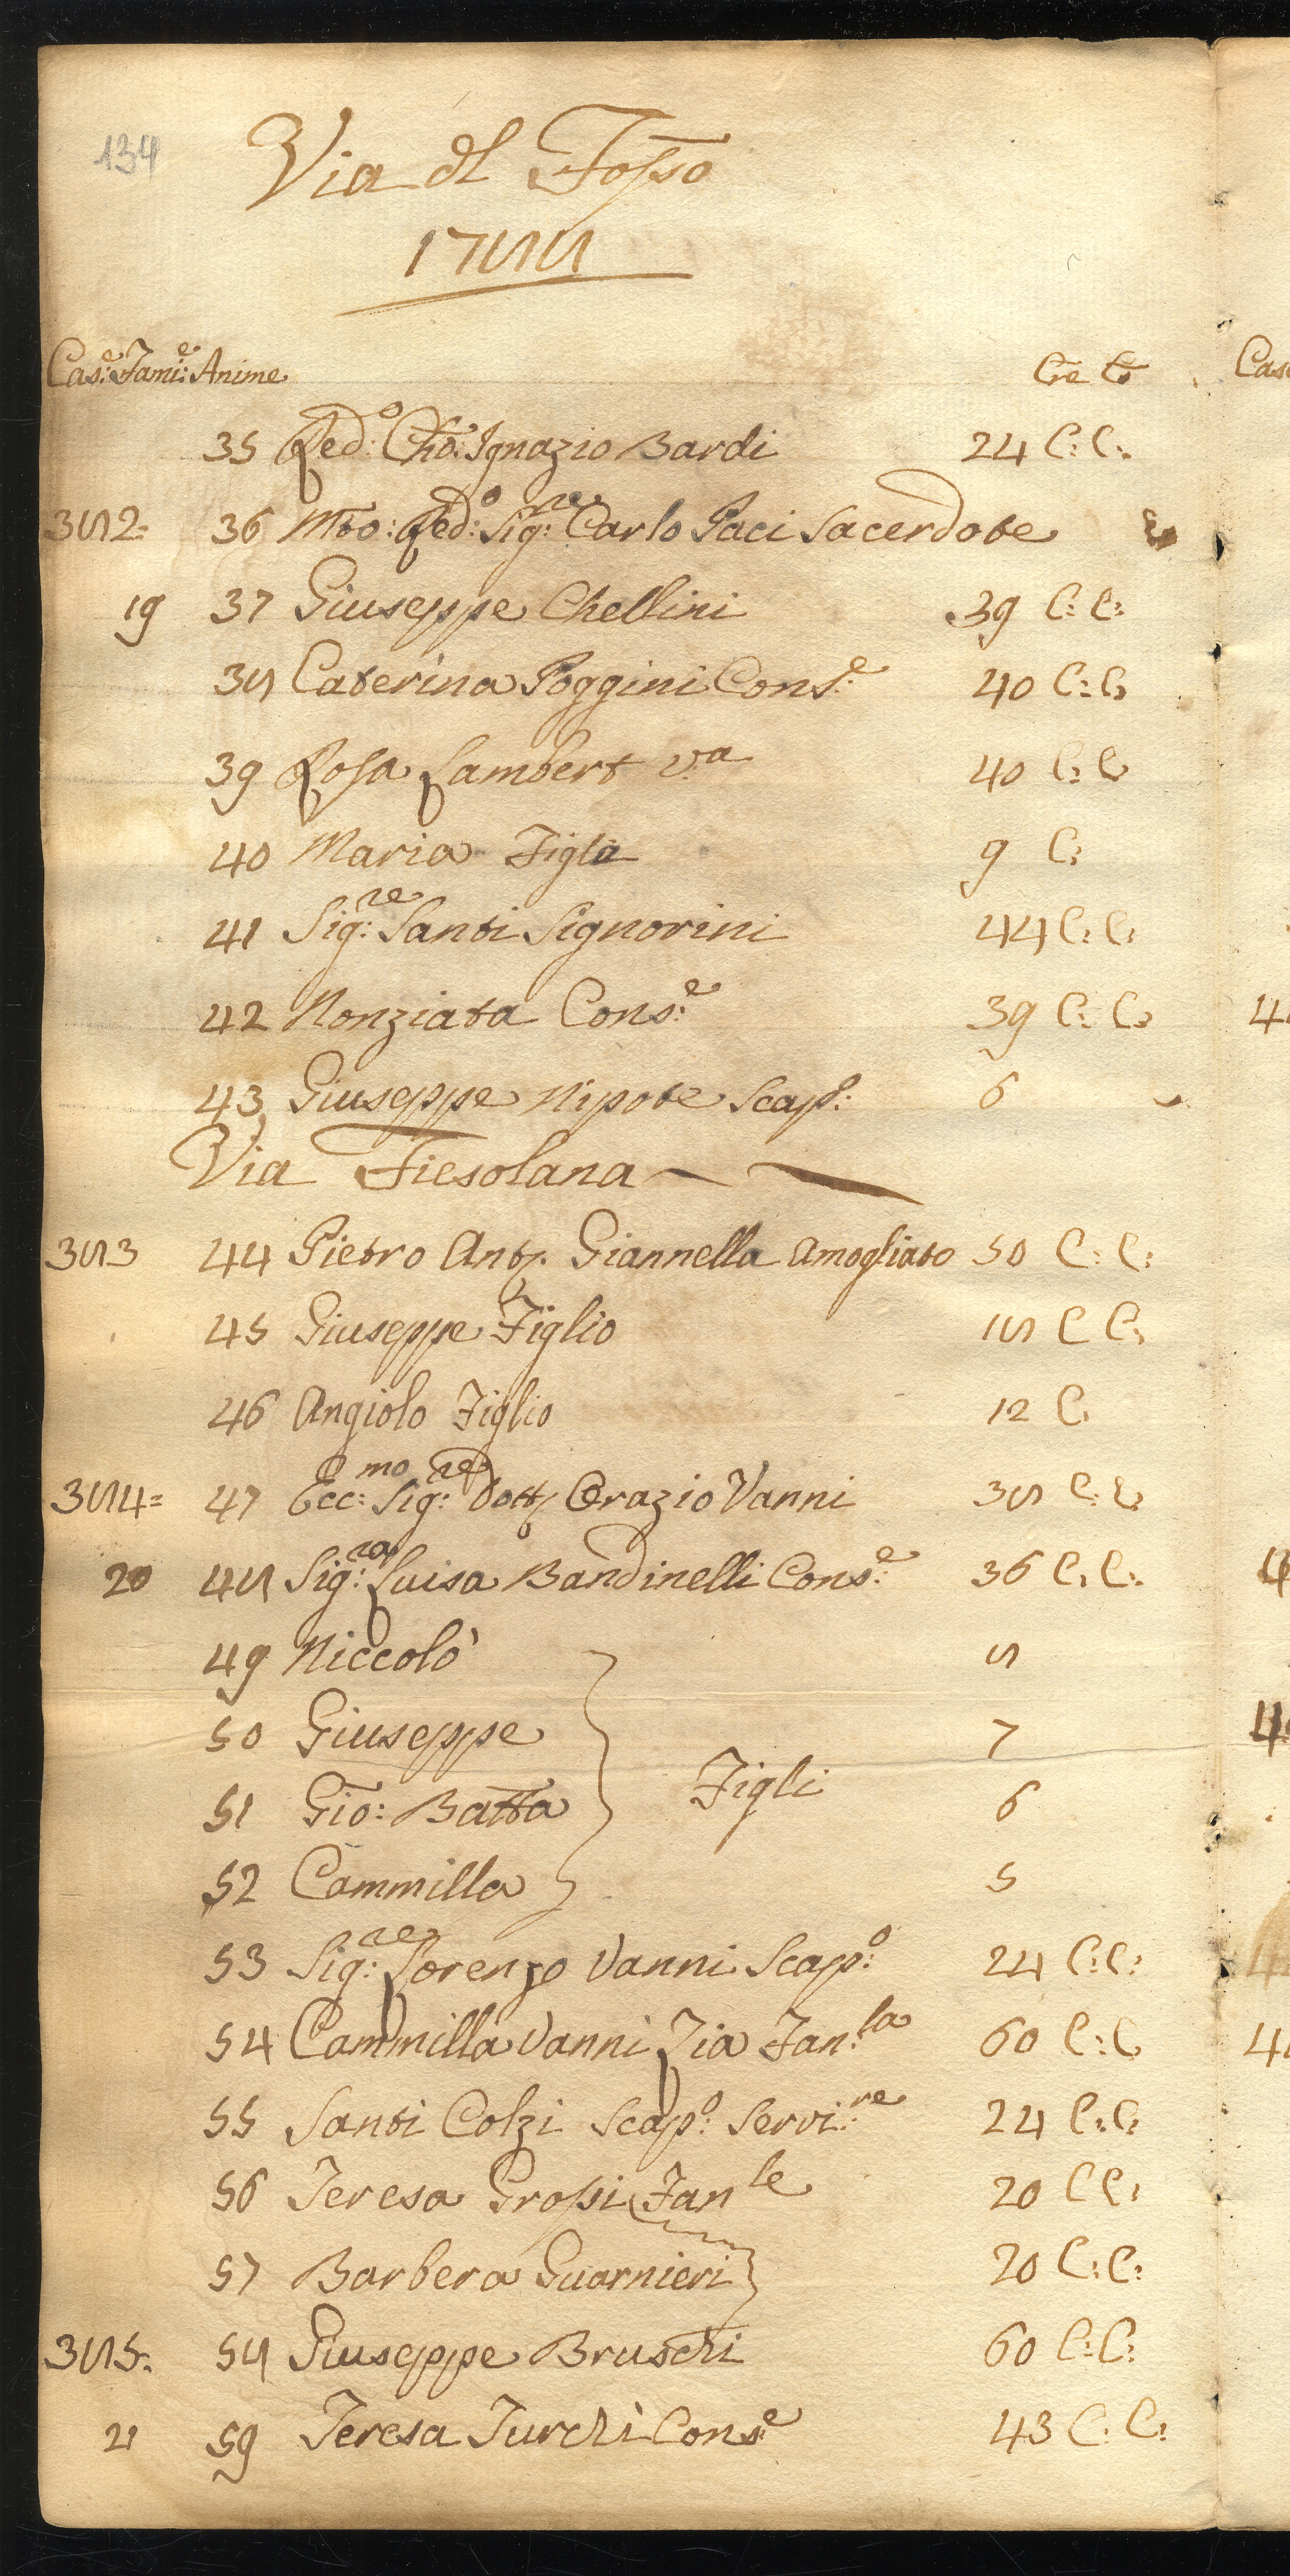 134
Via dl Fosso
1788
Cas:e Fami:e Anime Cre Co
35 Red:o Cho: Ignazio Bardi 24 C: C:
382= 36 Mto: Red:o Sig:re Carlo Paci Sacerdote
19 37 Giuseppe Chellini 39 C: C:
38 Caterina Poggini Cons:e 40 C: C
39 Rosa Lambert va 40 C: C
40 Maria Figla 9 C:
41 Sig:re Santi Signorini 44 C: C:
42 Nonziata Cons:e 39 C: C:
43 Giuseppe Nipote Scapo: 6
Via Fiesolana
383 44 Pietro Anto. Giannella Amogliato 50 C: C:
45 Giuseppe Figlio 18 C C:
46 Angiolo Figlio 12 C
384= 47 Ecc:mo Sig:re Dott. Orazio Vanni 38 C: C
20 48 Sig:ra Luisa Bandinelli Cons:e 36 C. C:
49 Niccolò 8
50 Giuseppe 7
Figli
51 Gio: Batta 6
52 Cammilla 5
53 Sig:re Lorenzo Vanni Scap:o 24 C: C:
54 Cammilla Vanni Zia Fan:la 60 C: C
55 Santi Colzi Scap:o Servi:re 24 C: C:
56 Teresa Grossi Fanle 20 C C:
57 Barbera Guarnieri 20 C: C:
385. 58 Giuseppe Bruschi 60 C: C:
21 59 Teresa Turchi Cons:e 43 C: C: